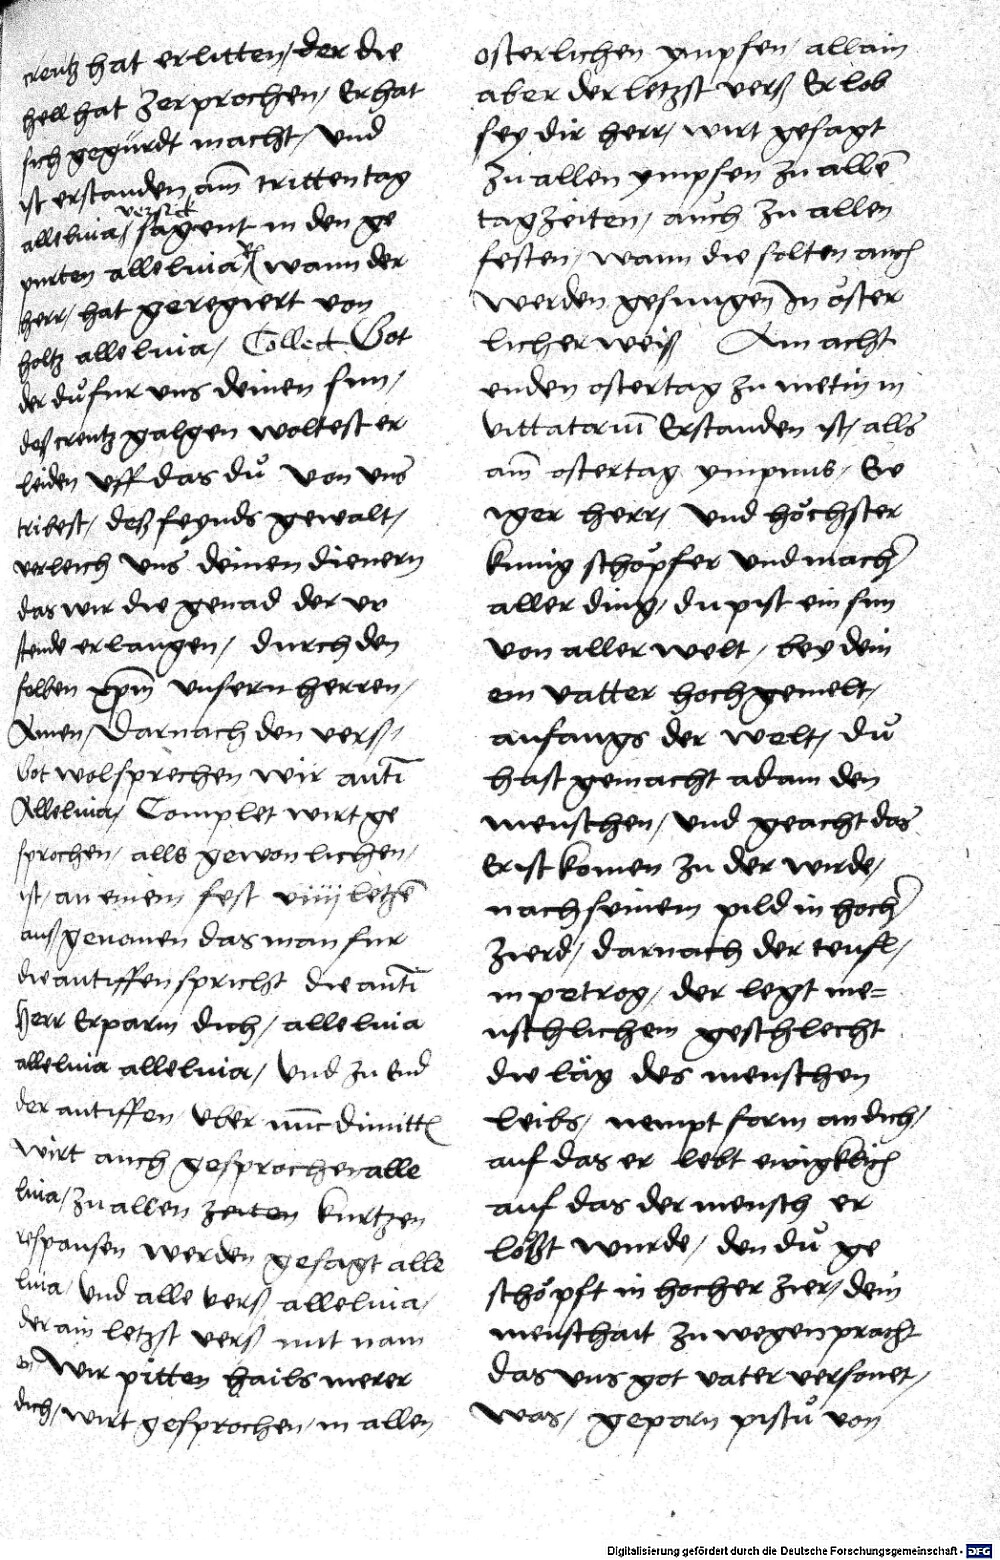 creutz hat erlitten / der die
hell hat zerprochen / Er hat
sich gegürdt macht / und
ist erstanden am̄ tritten tag
versick
alleluia / sagent in den ge
purten alleluia wann der
herr / hat geregiert von
holtz alleluia / Collect Got
der dů fur uns deinen sun /
deß creutz galgen woltest er
leiden uff das dů von uns
tribest / deß feynds gewalt /
verleich uns deinen dienern
das wir die genad der ur
stende erlangen / durch den
selben xp̄m unsern herren /
Amen / Darnach den verß /
Got wolsprechen wir anti
Alleluia / Complet wirt ge
sprochen / alls gewonlichen /
ist / an einem fest letzē
auß genomen das man fur
die antiffen spricht die anti
Herr Erparm dich / alleluia
alleluia alleluia / und zu End
der antiffen uber nūc dimitt
wirt auch gesprochen alle
luia / zu allen zeiten kurtzen
responsen werden gesagt alle
luia / und alle verß alleluia /
der ain letzst verß mit nam
en Wir pitten hails merer
dich / wirt gesprochen / in allen
osterlichen ympsen / allain
aber der letzst verß Er lob
sey dir herr / wirt gesagt
zu allen ympsen zu allē
tagzeiten / auch zu allen
festen / wann die solten auch
werden gesungen In öster
licher weiß Am acht
enden ostertag zu metin in
vittatoriū Erstanden ist / alls
am̄ ostertag ympnus / Ew
iger herr / und höchster
kunig schöpfer und macher
aller ding / du pist ein sun
von aller welt / bey dein
em vatter hoch gemelt /
anfangs der welt / dů
hast gemacht adam den
menschen / und geacht das
Er ist komen zu der wirde /
nach seinem pild in hocher
zierd / darnach der teufl /
in petrog / der legt me=
nschlichem geschlecht
die läg des menschen
leibs / nempt form an dich /
auf das er lebt ewigklich
auf das der mensch er
lößt wurde / den dů ge
schöpft in hocher zier / dein
menschait zu wegen pracht
das uns got vater versonet /
was / geparn pistů von
Digitalisierung gefördert durch die Deutsche Forschungsgemeinschaft - DFG